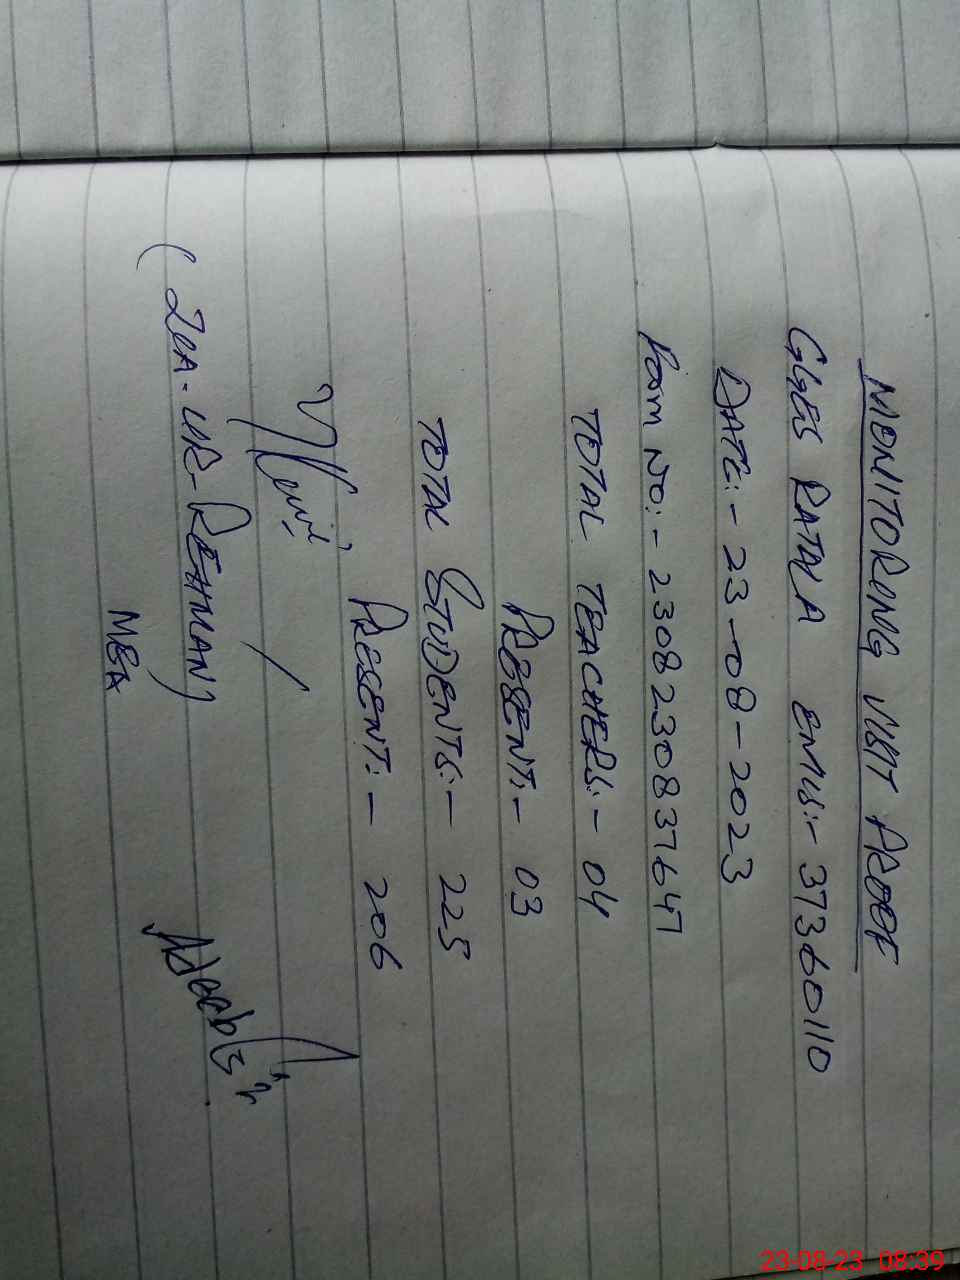 MONITORING VISIT PROOF
GGES RATALA EMIS:- 37360110
DATE:- 23-08-2023
Form No:- 2308230837647
TOTAL TEACHERS:- 04
PRESENT:- 03
TOTAL STUDENTS:- 225
PRESENT:- 206
(ZIA-UR-REHMAN)
MEA
23-08-23 08:39